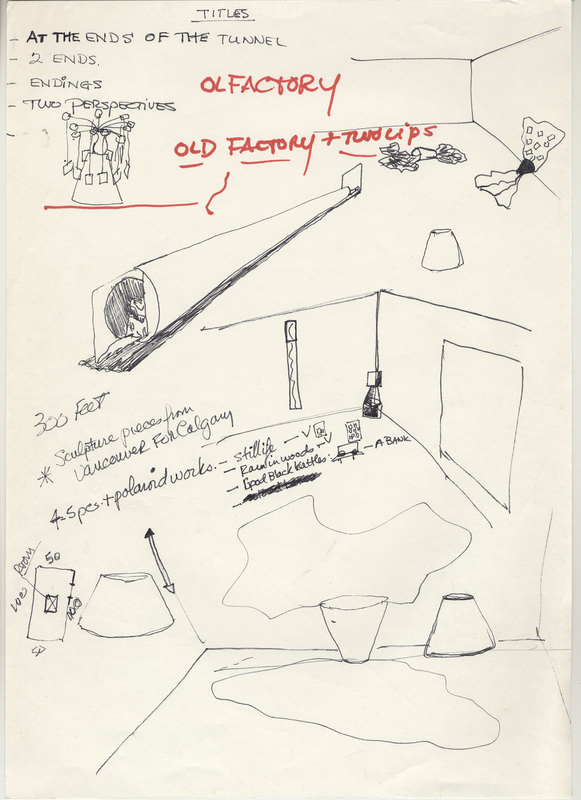 TITLES
- AT THE ENDS OF THE TUNNEL
- 2 ENDS.
- ENDINGS
- TWO PERSPECTIVES
-
OLFACTORY
OLD FACTORY + TWO LIPS
300 FEET
* Sculpture pieces from
Vancouver For Calgary
4-5 pcs + polaroid works.
- Still life - V
- Rain in woods - V
- Good Black Kettles.
- A BANK
50
100